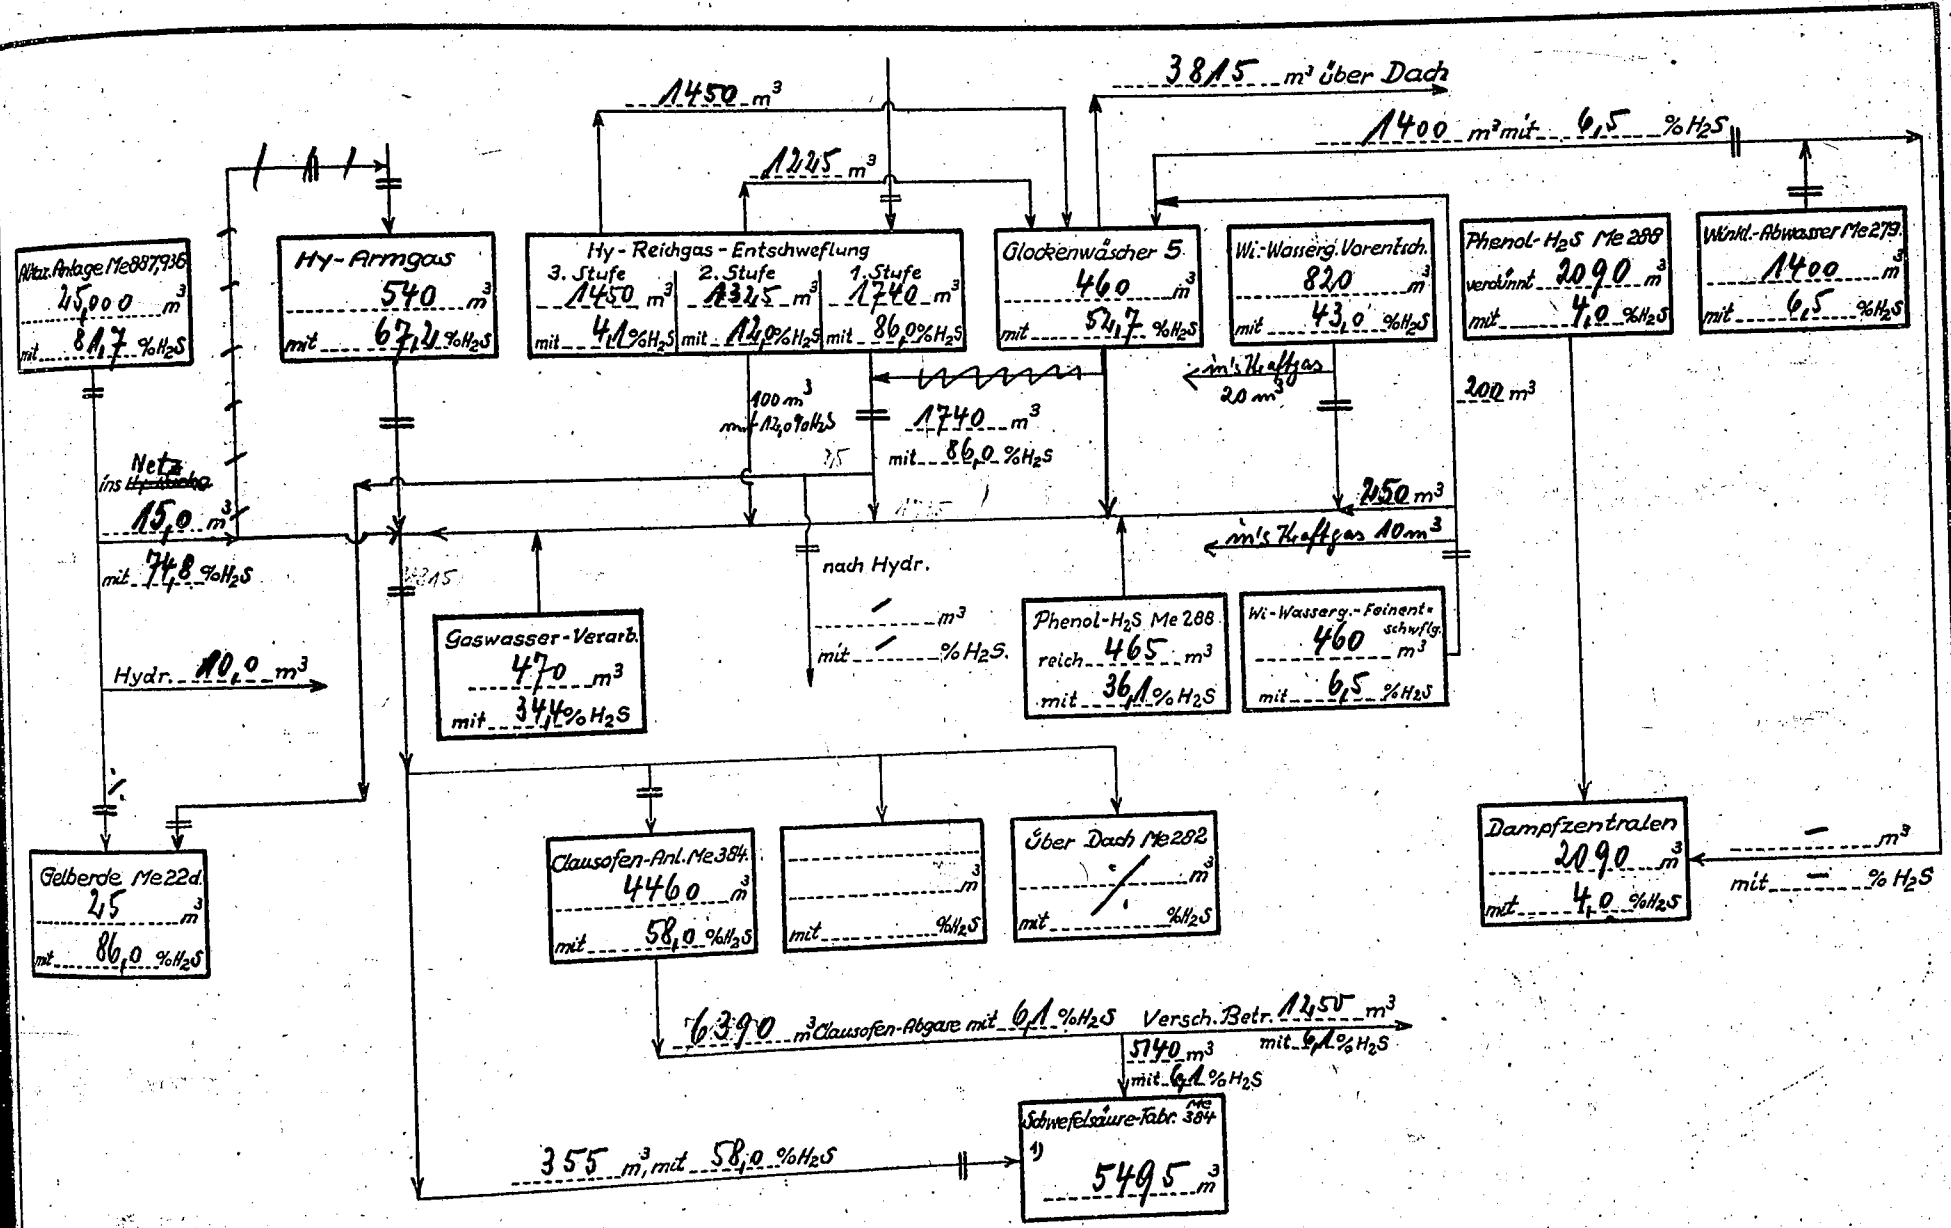 3815 m³ über Dach
1450 m³
1400 m³ mit 6,5 % H₂S
1225 m³
Alkaz. Anlage Me 887, 936
25,000 m³
mit 81,7 % H₂S
Hy-Armgas
540 m³
mit 67,2 % H₂S
Hy-Reichgas-Entschweflung
3. Stufe
1450 m³
mit 4,1 % H₂S
2. Stufe
1325 m³
mit 12,0 % H₂S
1. Stufe
1740 m³
mit 86,0 % H₂S
Glockenwäscher 5.
460 m³
mit 52,7 % H₂S
Wi-Wasserg. Vorentsch.
820 m³
mit 43,0 % H₂S
Phenol-H₂S Me 288
verdünnt 2090 m³
mit 4,0 % H₂S
Winkl.-Abwasser Me 279.
1400 m³
mit 6,5 % H₂S
in's Kraftgas
20 m³
200 m³
100 m³
mit 12,0 % H₂S
1740 m³
mit 86,0 % H₂S
Netz
ins
15,0 m³
mit 74,8 % H₂S
250 m³
in's Kraftgas 10 m³
nach Hydr.
/ m³
mit / % H₂S.
Hydr. 10,0 m³
Gaswasser-Verarb.
470 m³
mit 34,4 % H₂S
Phenol-H₂S Me 288
reich 465 m³
mit 36,1 % H₂S
Wi-Wasserg.-Feinent-
schwflg.
460 m³
mit 6,5 % H₂S
Gelberde Me 22d.
25 m³
mit 86,0 % H₂S
Clausofen-Anl. Me 384.
4460 m³
mit 58,0 % H₂S
m³
mit % H₂S
über Dach Me 282
m³
mit % H₂S
Dampfzentralen
2090 m³
mit 4,0 % H₂S
– m³
mit – % H₂S
6390 m³ Clausofen-Abgase mit 6,1 % H₂S Versch. Betr. 1250 m³
mit 6,1 % H₂S
5140 m³
mit 6,1 % H₂S
Schwefelsäure-Fabr. Me 384
1)
5495 m³
355 m³, mit 58,0 % H₂S